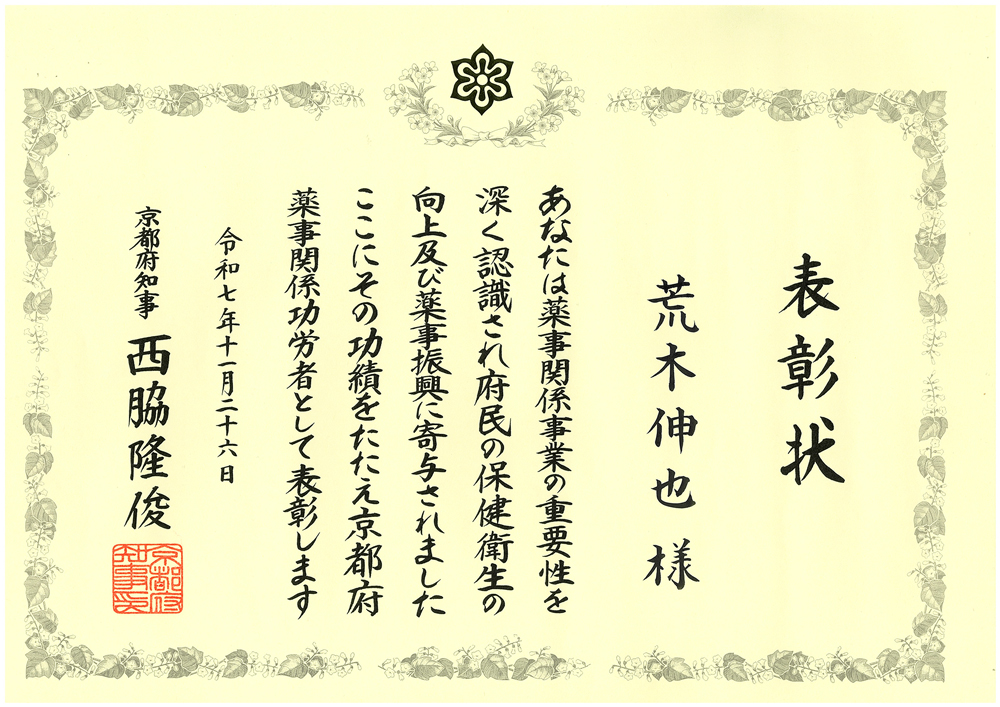 表彰状
荒木伸也 様
あなたは薬事関係事業の重要性を
深く認識され府民の保健衛生の
向上及び薬事振興に寄与されました
ここにその功績をたたえ京都府
薬事関係功労者として表彰します
令和七年十一月二十六日
京都府知事 西脇隆俊
京都府
知事印